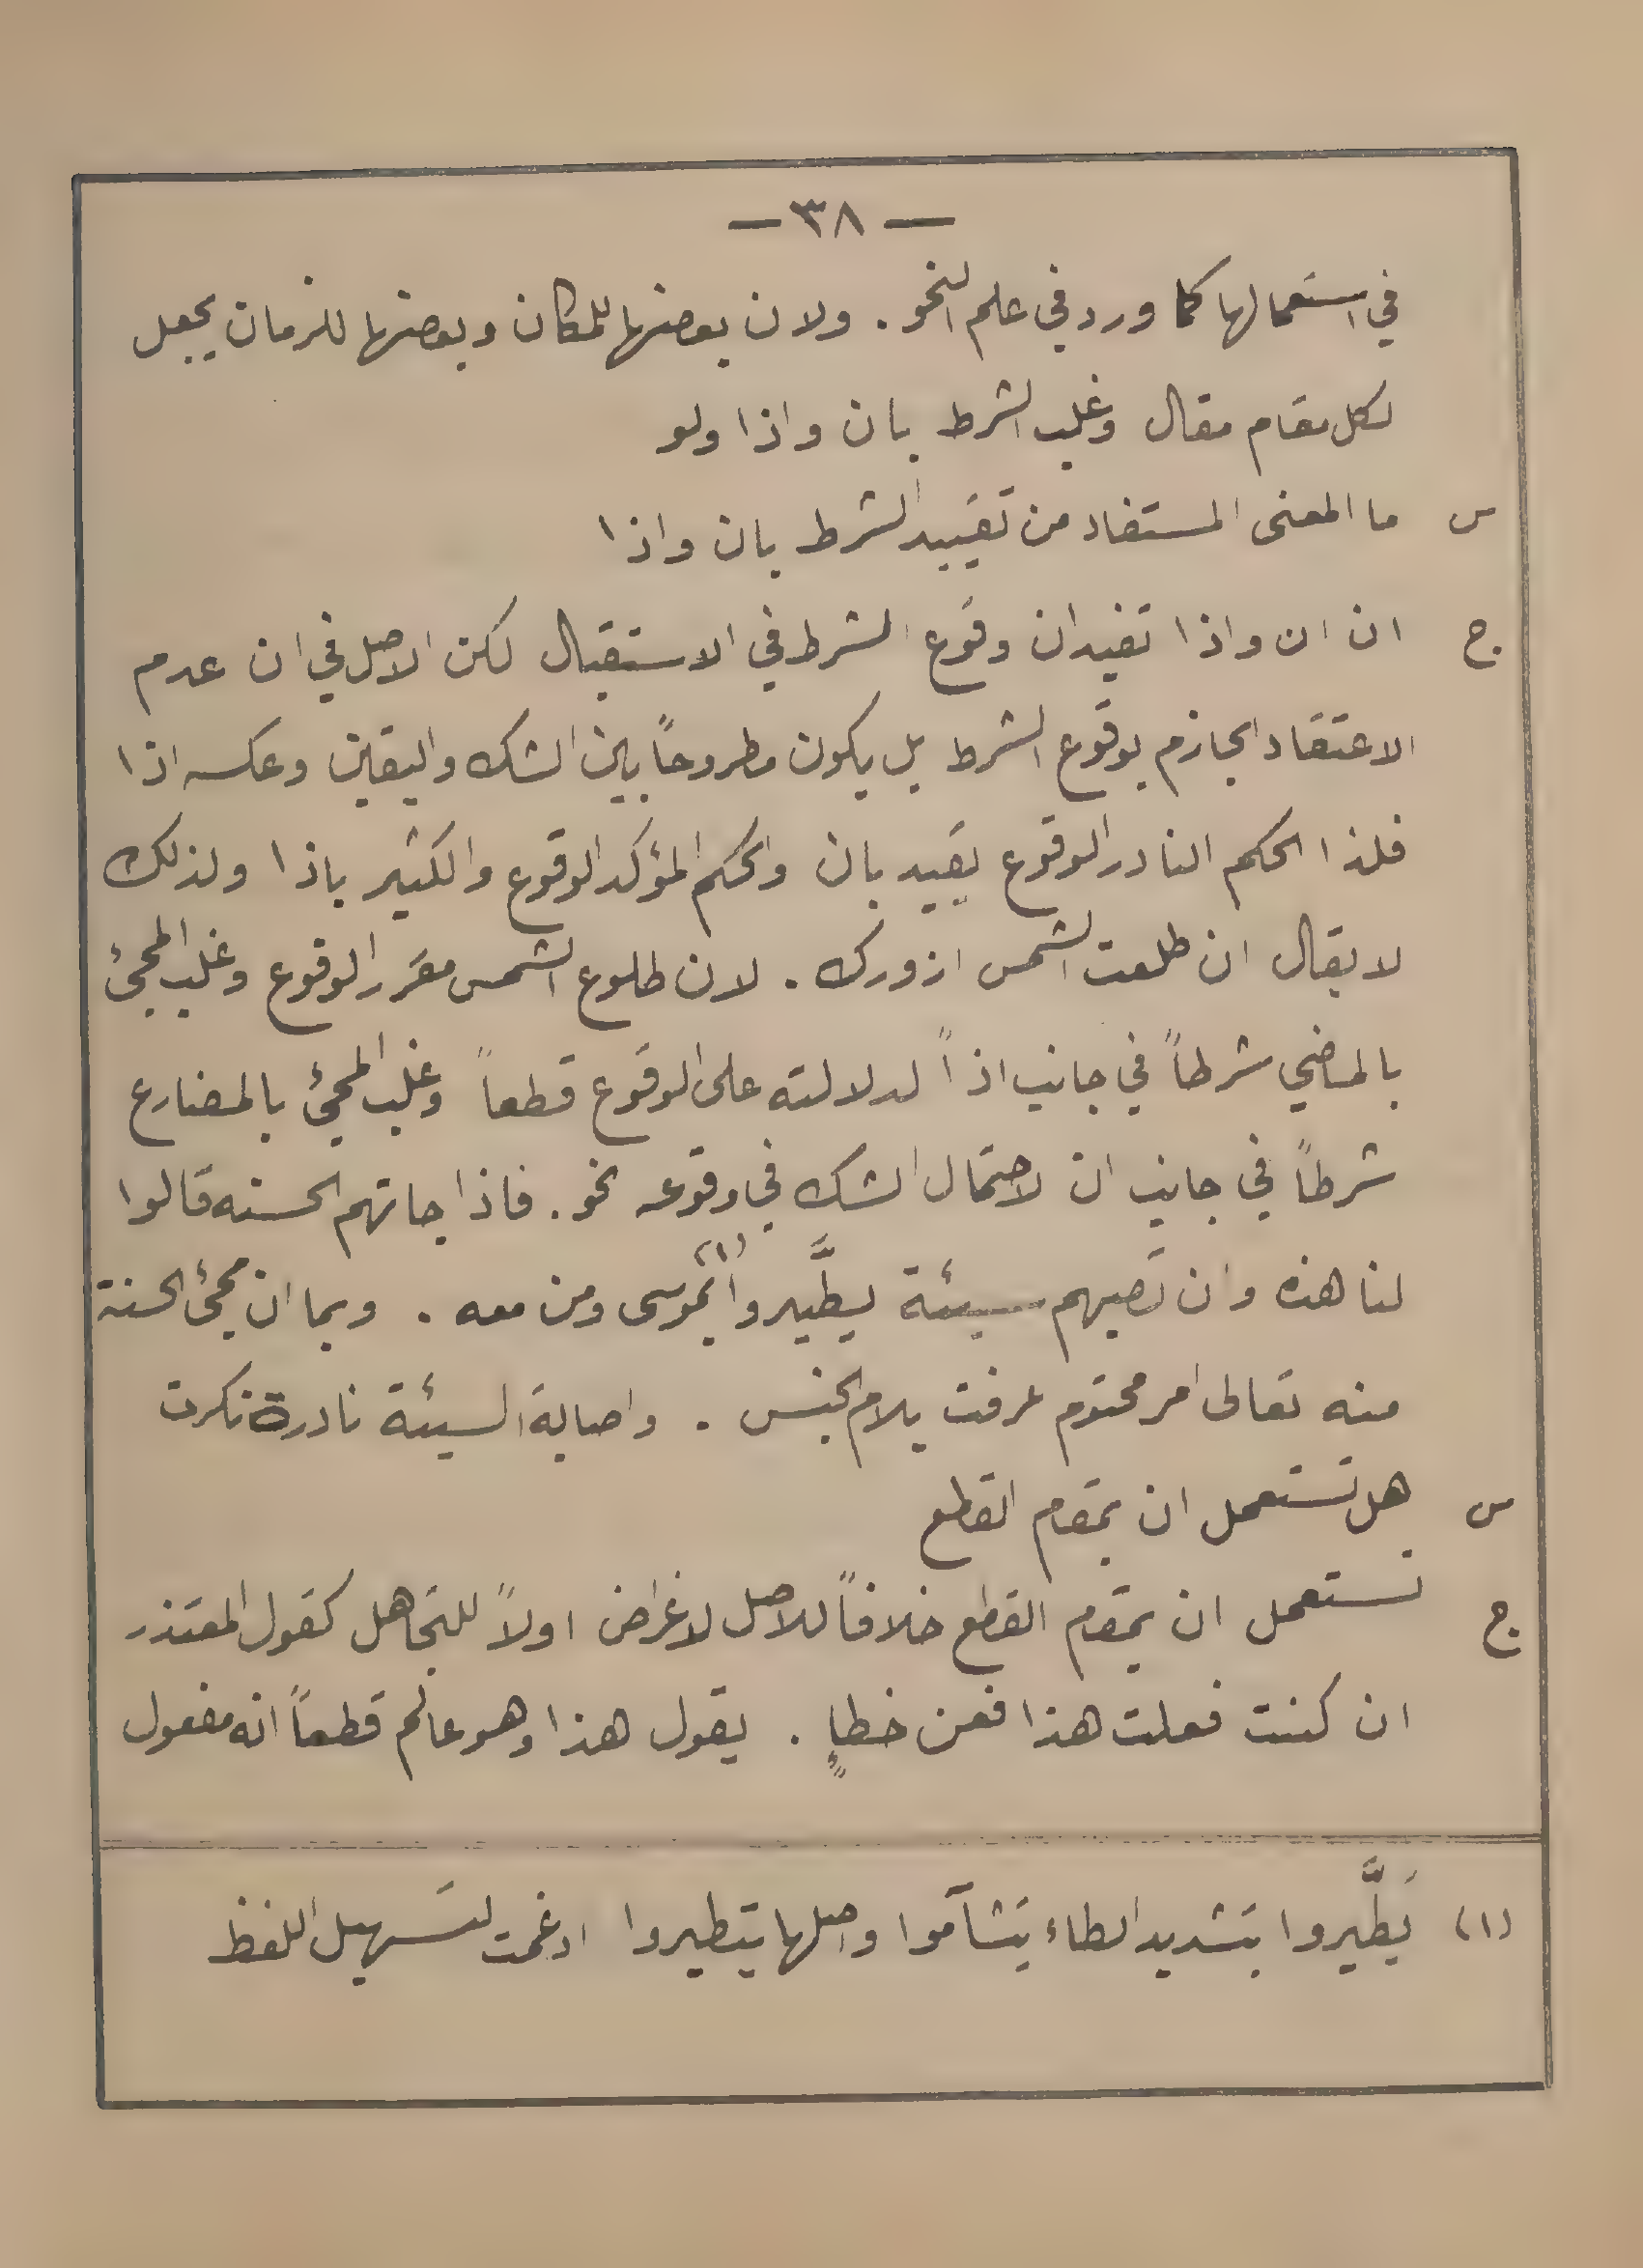 — ٣٨ —
في استعمالها كما ورد في علم النحو . ولان بعضها للمكان وبعضها للزمان يجعل
لكل مقام مقال وغلب الشرط بان واذا ولو
س ما المعنى المستفاد من تقييد الشرط بان واذا
ج ان ان واذا تفيدان وقوع الشرط في الاستقبال لكن الاصل في ان عدم
الاعتقاد الجازم بوقوع الشرط بل يكون مطروحاً بين الشك واليقين وعكسه اذا
فلذا الحكم النادر الوقوع يقيد بان والحكم المؤكد الوقوع والكثير باذا ولذلك
لا يقال ان طلعت الشمس ازورك . لان طلوع الشمس مقرر الوقوع وغلب المجئ
بالماضي شرطاً في جانب اذاً لدلالته على الوقوع قطعاً وغلب المجئ بالمضارع
شرطاً في جانب ان لاحتمال الشك في وقوعه نحو . فاذا جاتهم الحسنه قالوا
لنا هذه وان تصبهم سيئة يطَّيروا (١) بموسى ومن معه . وبما ان مجئ الحسنة
منه تعالى امر محتوم عرفت بلام الجنس . واصابة السيئة نادرة نكرت
س هل تستعمل ان بمقام القطع
ج تستعمل ان بمقام القطع خلافاً للاصل لاغراض اولاً للتجاهل كقول المعتذر
ان كنت فعلت هذا فعن خطاٍ . يقول هذا وهو عالم قطعاً انه مفعول
(١) يَطَّيروا بتشديد الطاء يتشآموا واصلها يتطيروا ادغمت لتسهيل اللفظ